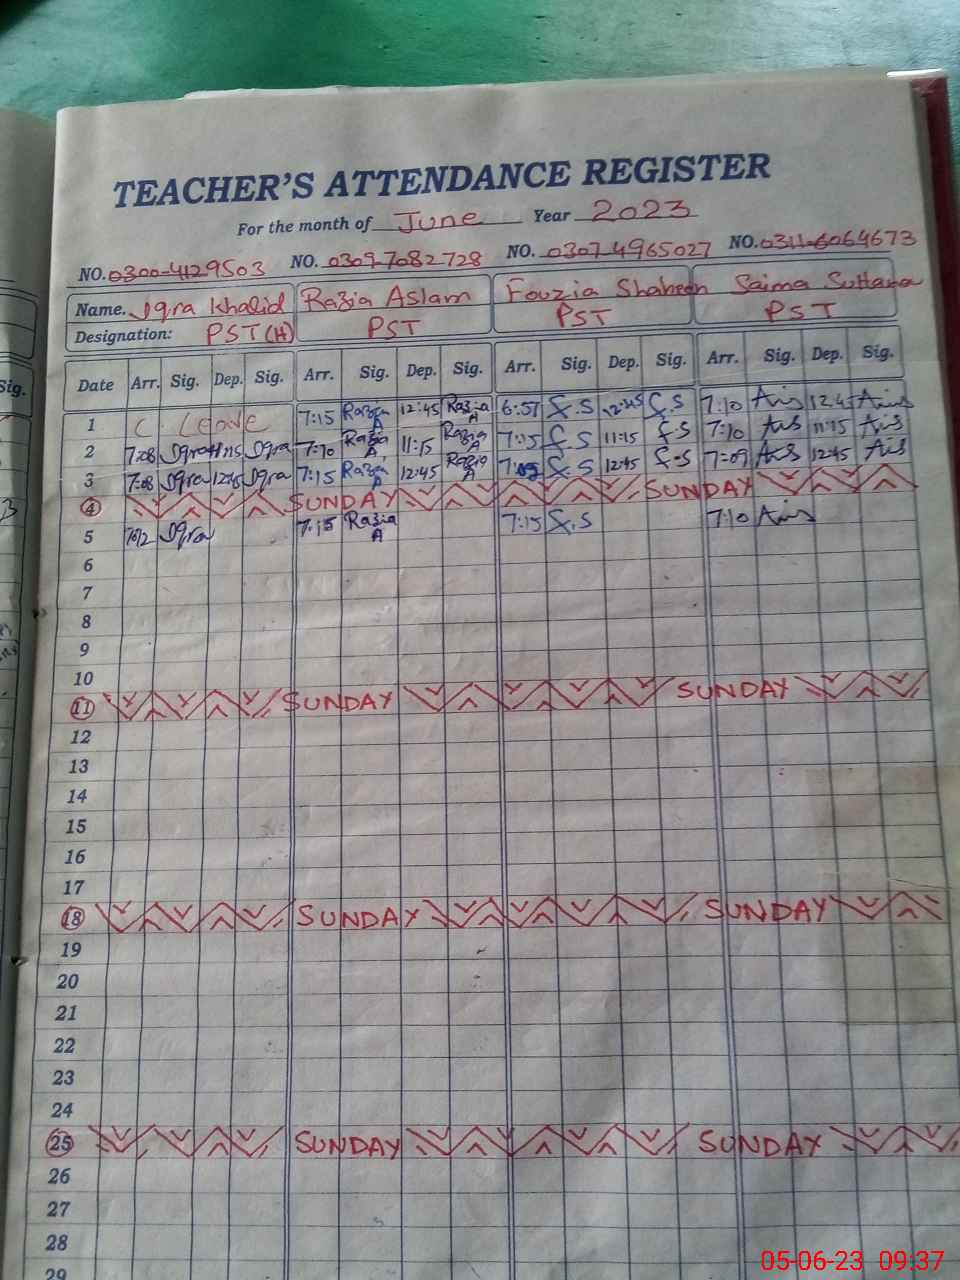 TEACHER'S ATTENDANCE REGISTER
For the month of June Year 2023
NO. 0300-4129503 NO. 0309-7082728 NO. 0307-4965027 NO. 0311-6064673
Name. Iqra Khalid Razia Aslam Fouzia Shaheen Saima Sultana
Designation: PST (H) PST PST PST
Date Arr. Sig. Dep. Sig. Arr. Sig. Dep. Sig. Arr. Sig. Dep. Sig. Arr. Sig. Dep. Sig.
1 C. Leave 7:15 Razia A 12:45 Razia A 6:57 F.S 12:45 F.S 7:10 12:45
2 7:08 Iqra Iqra 7:10 Razia A 11:15 Razia A 7:15 F.S 11:15 F.S 7:10 11:15
3 7:08 Iqra 12:45 Iqra 7:15 Razia A 12:45 Razia A F.S 12:45 F.S 7:09 12:45
4 SUNDAY SUNDAY
5 Iqra 7:15 Razia A 7:15 F.S 7:10
6
7
8
9
10
11 SUNDAY SUNDAY
12
13
14
15
16
17
18 SUNDAY SUNDAY
19
20
21
22
23
24
25 SUNDAY SUNDAY
26
27
28
29
05-06-23 09:37